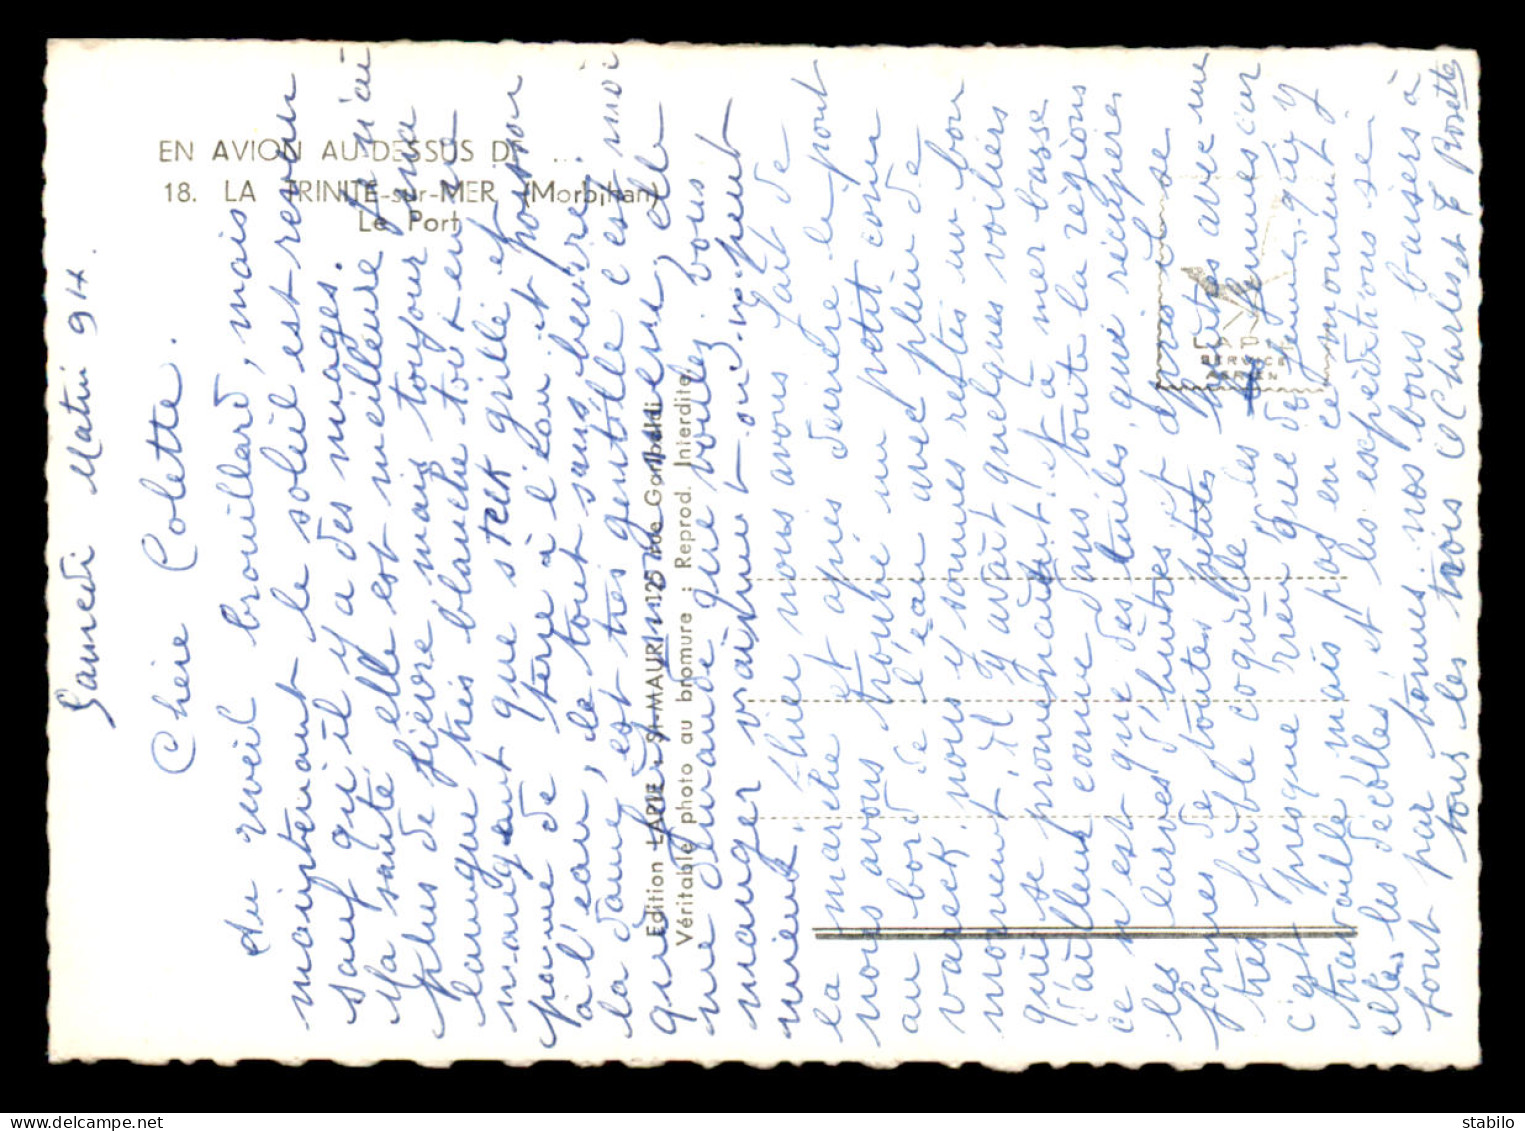 EN AVION AU-DESSUS DE ...
18. LA TRINITÉ-sur-MER (Morbihan)
Le Port
Edition LAPIE - St-MAUR 125 rue Garibaldi
Véritable photo au bromure : Reprod. Interdite
LAPIE
SERVICE
AERIEN
Samedi Matin 9H.
Chère Colette.
Au reveil brouillard, mais
maintenant le soleil est revenu
sauf qu'il y a des nuages.
Ma santé elle est meilleure je n'ai
plus de fièvre mais toujour la
langue très blanche tout en ne
mangeant que steck grillé et
pomme de terre à l'eau et poisson
à l'eau, le tout sans beurre.
la dame est très gentille c'est moi
qui
me demande que voulez vous
manger vraiment on ne peut
mieux. Hier nous avons fait de
la marche et après derrière le pont
nous avons trouvé un petit coin
au bord de l'eau avec plein de
vareck. nous y sommes restés un bon
moment, il y avait quelques voiliers
qui se promenaient et à mer basse
d'ailleurs comme dans toute la région
ce n'est que des tuiles, qui récupères
les larves d'huitres et après se
formes de toutes petites huitres avec une
très faible coquille les femmes car
c'est presque rien que des femmes qui y
travaille mais pas en ce moment
elles les décolles, et les expéditions se
font par tonnes. nos bons baisers à
tous les trois Charles et T Rosette